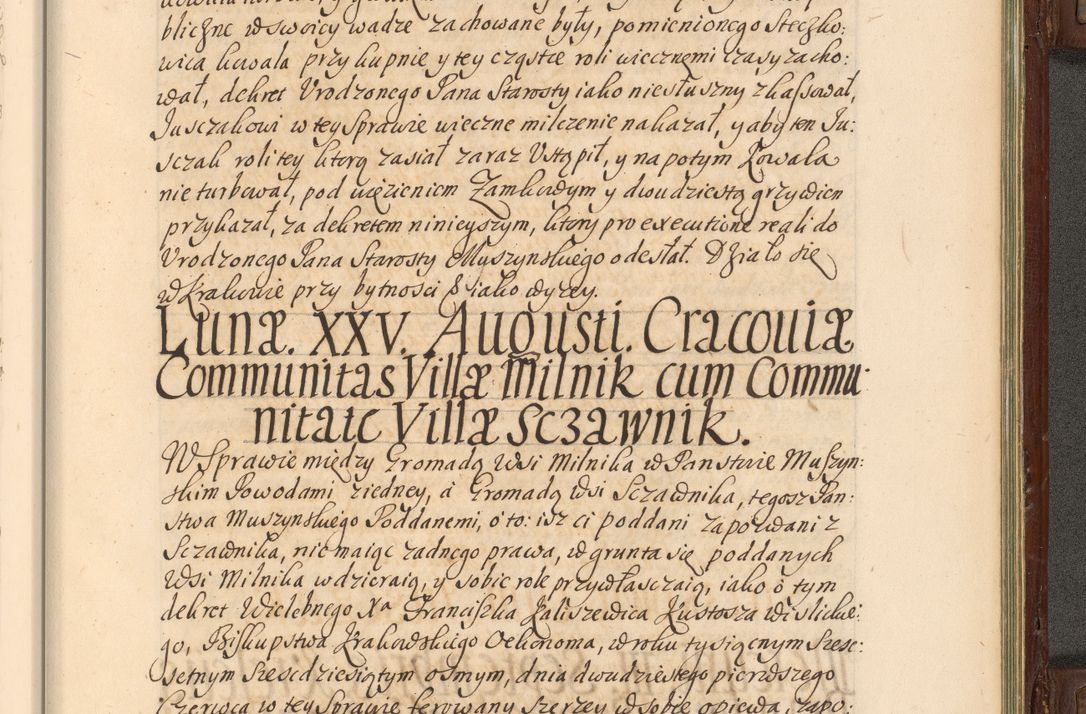 bliczne w swoicy wadze zachowane były, pomienionego Steczko:
wica kowala przy kupnie y tey cząstce roli wiecznemi czasy zacho:
wał, dekret Urodzonego Pana Starosty iako niesłuszny zkassował,
Jusczakowi w tey Sprawie wieczne milczenie nakazał, y aby ten Ju:
sczak roli tey ktorą zasiał zaraz Ustąpił, y napotym Kowala
nie turbował, pod więzieniem Zamkowym y dwudziestą grzywien
przykazał, za dekretem ninieyszym, ktory pro executione reali do
Urodzonego Pana Starosty Muszynskiego odesłał. Działo się
w Krakowie przy bytnosci & iako wyzey.
Lunæ. XXV. Augusti. Cracoviæ
Communitas Villæ Milnik cum Commu:
nitate Villæ Sczawnik.
W Sprawie między Gromadą Wsi Milnika w Panstwie Muszyn:
skim Powodami ziedney, á Gromadą wsi Sczawnika, tegosz Pan:
stwa Muszynskiego Poddanemi, o to: isz ci poddani zapozwani z
Sczawnika, nie maiąc zadnego prawa, w grunta się poddanych
Wsi Milnika wdzieraią, y sobie role przywłasczaią, iako o tym
dekret Wielebnego Xa Franciszka Kaliszewica Kustosza Wislickie:
go, Biskupstwa Krakowskiego Oekonoma, w roku tysiącnym Szesc:
setnym Szescdziesiątym osmym, dnia dwudziestego pierwszego
Czerwca w tey Sprawie ferowany szerzey w sobie opiewa, zapo: